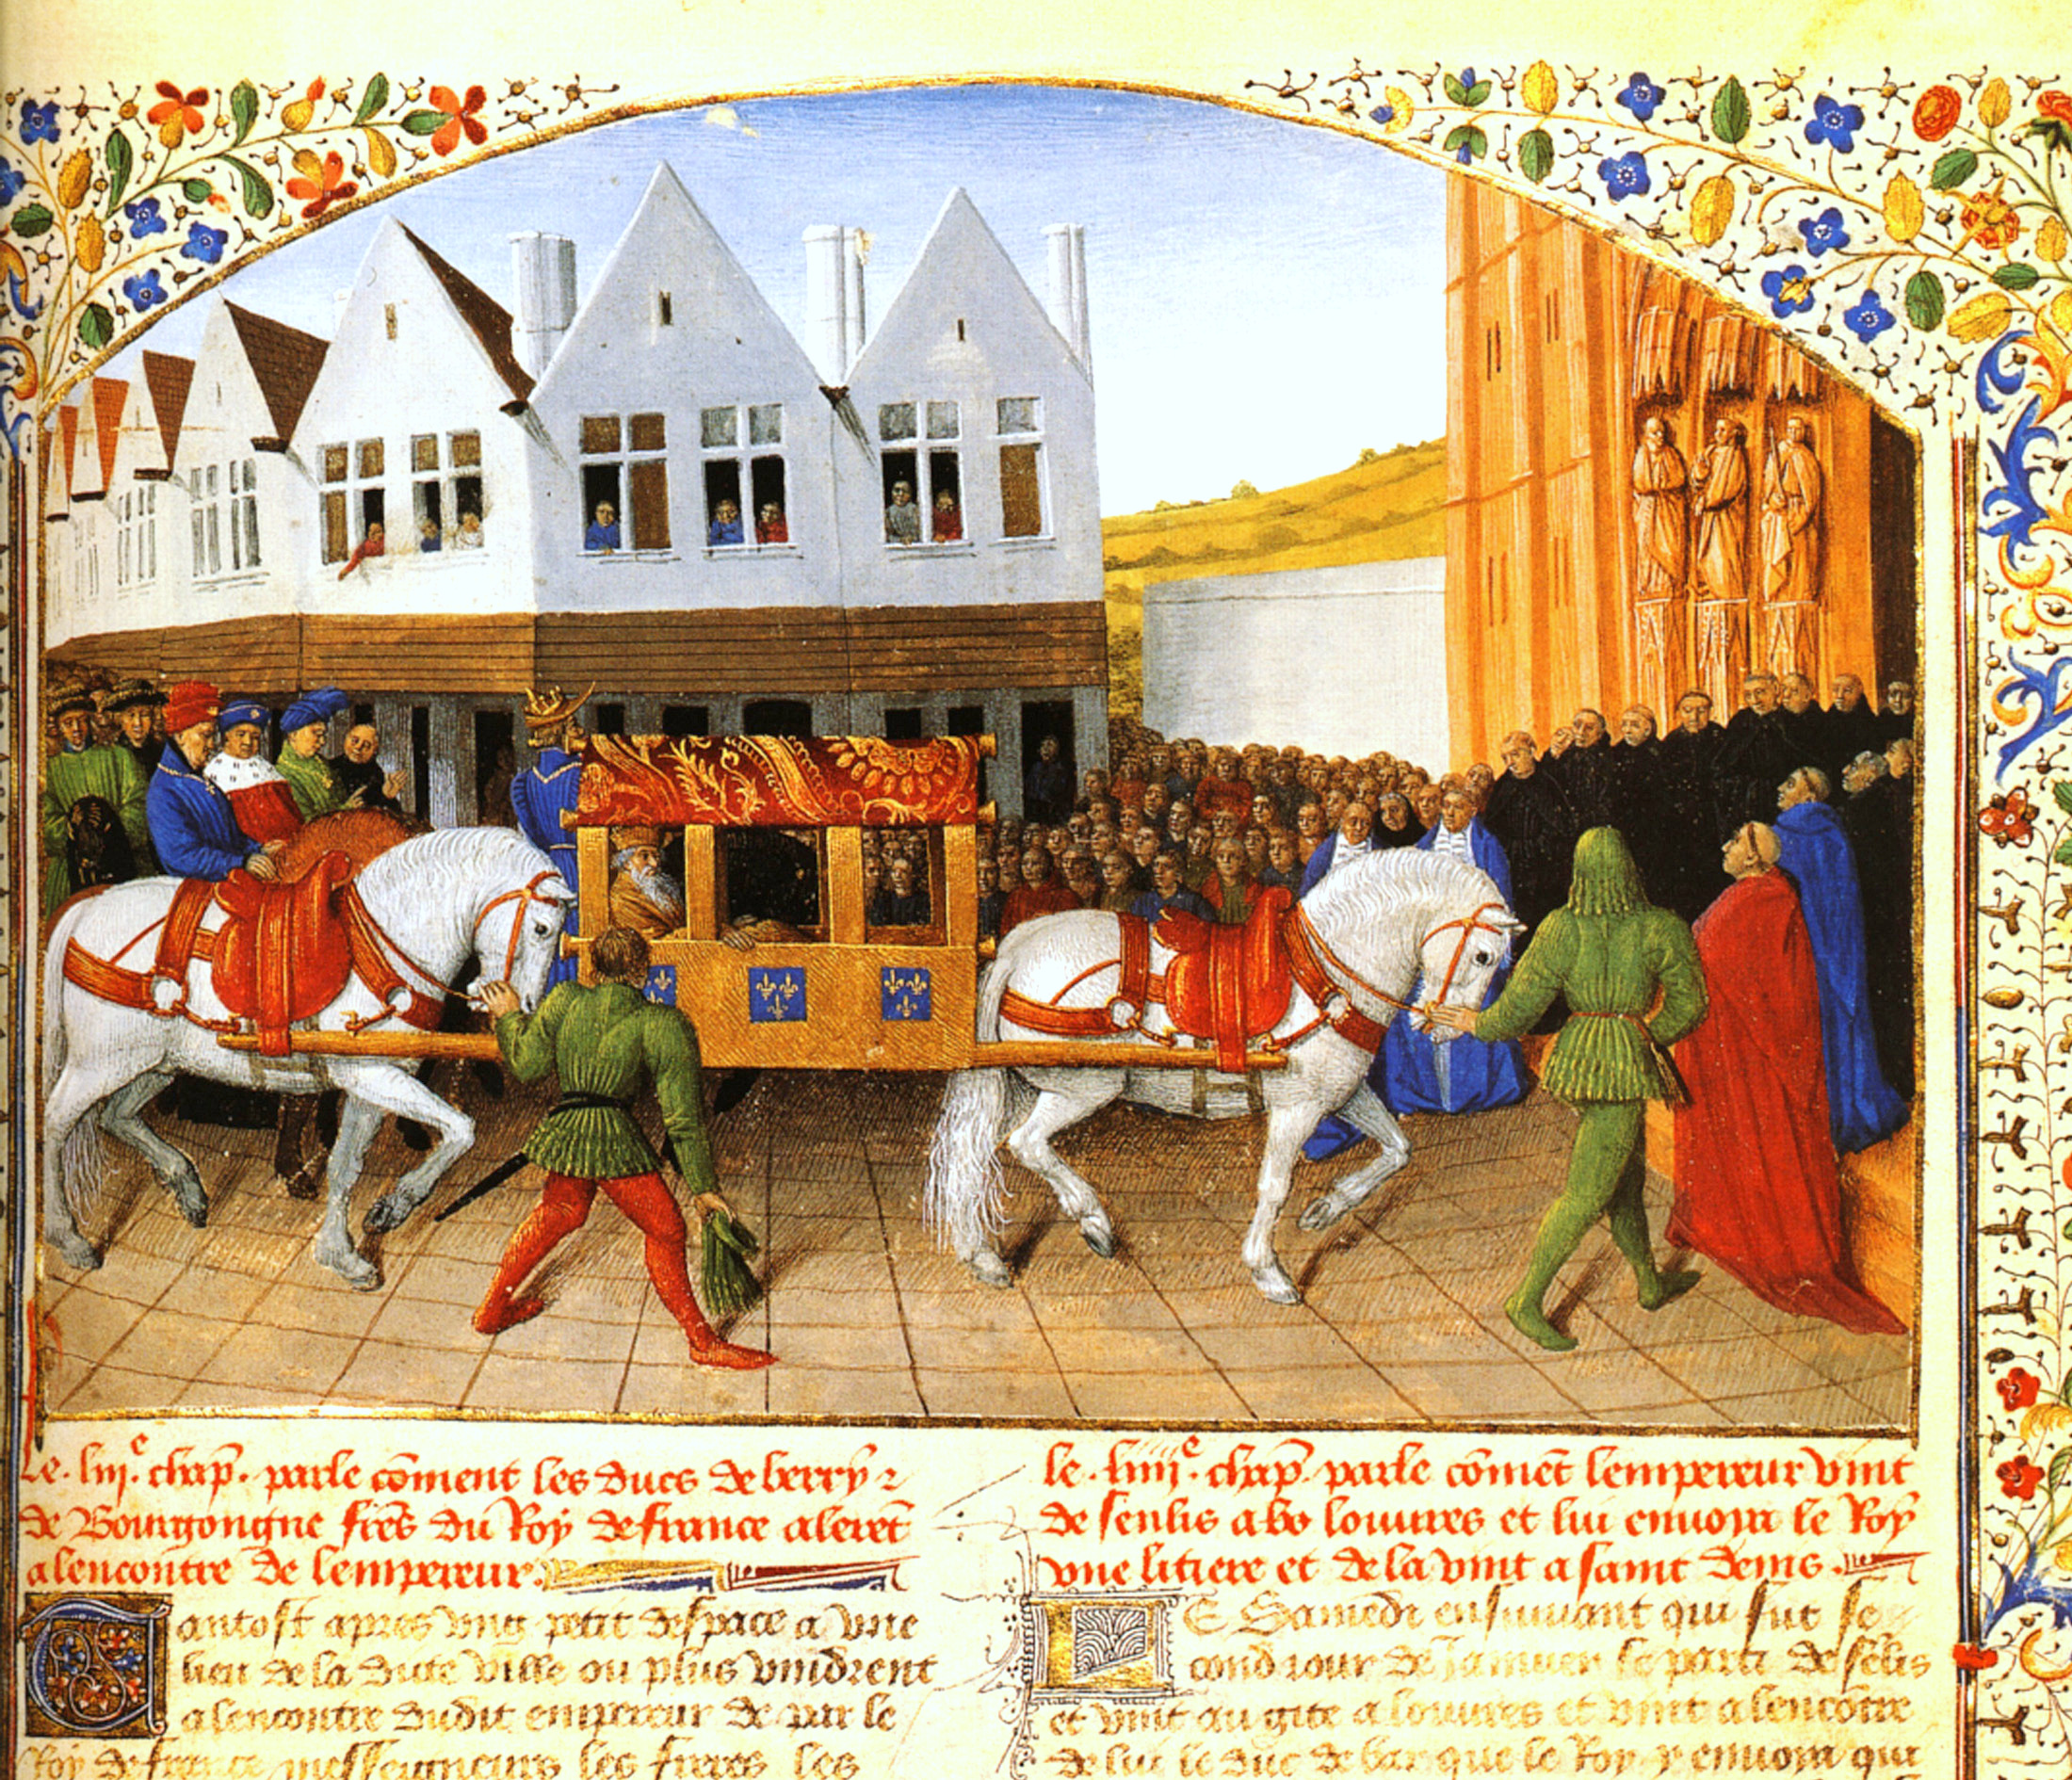 Le .liii.e chap. parle cõment les ducs de berry ⁊
de Bourgongne freres du Roy de france alerẽt
a lencontre de lempereur.
Tantost apres vng petit despace a vne
lieu de la dite ville ou plus vindrent
a lencontre dudit empereur de par le
Roy de france messeigneurs les freres les
le .liiii.e chap. parle cõmẽt lempereur vint
de senlis a louures et lui enuoya le Roy
vne litiere et de la vint a saint denis.
LE Samedi ensuiuant qui fut se
cond iour de Januier se parti de sẽlis
et vint au giste a louures et vint a lencõtre
de lui le duc de bar que le Roy y enuoya qui